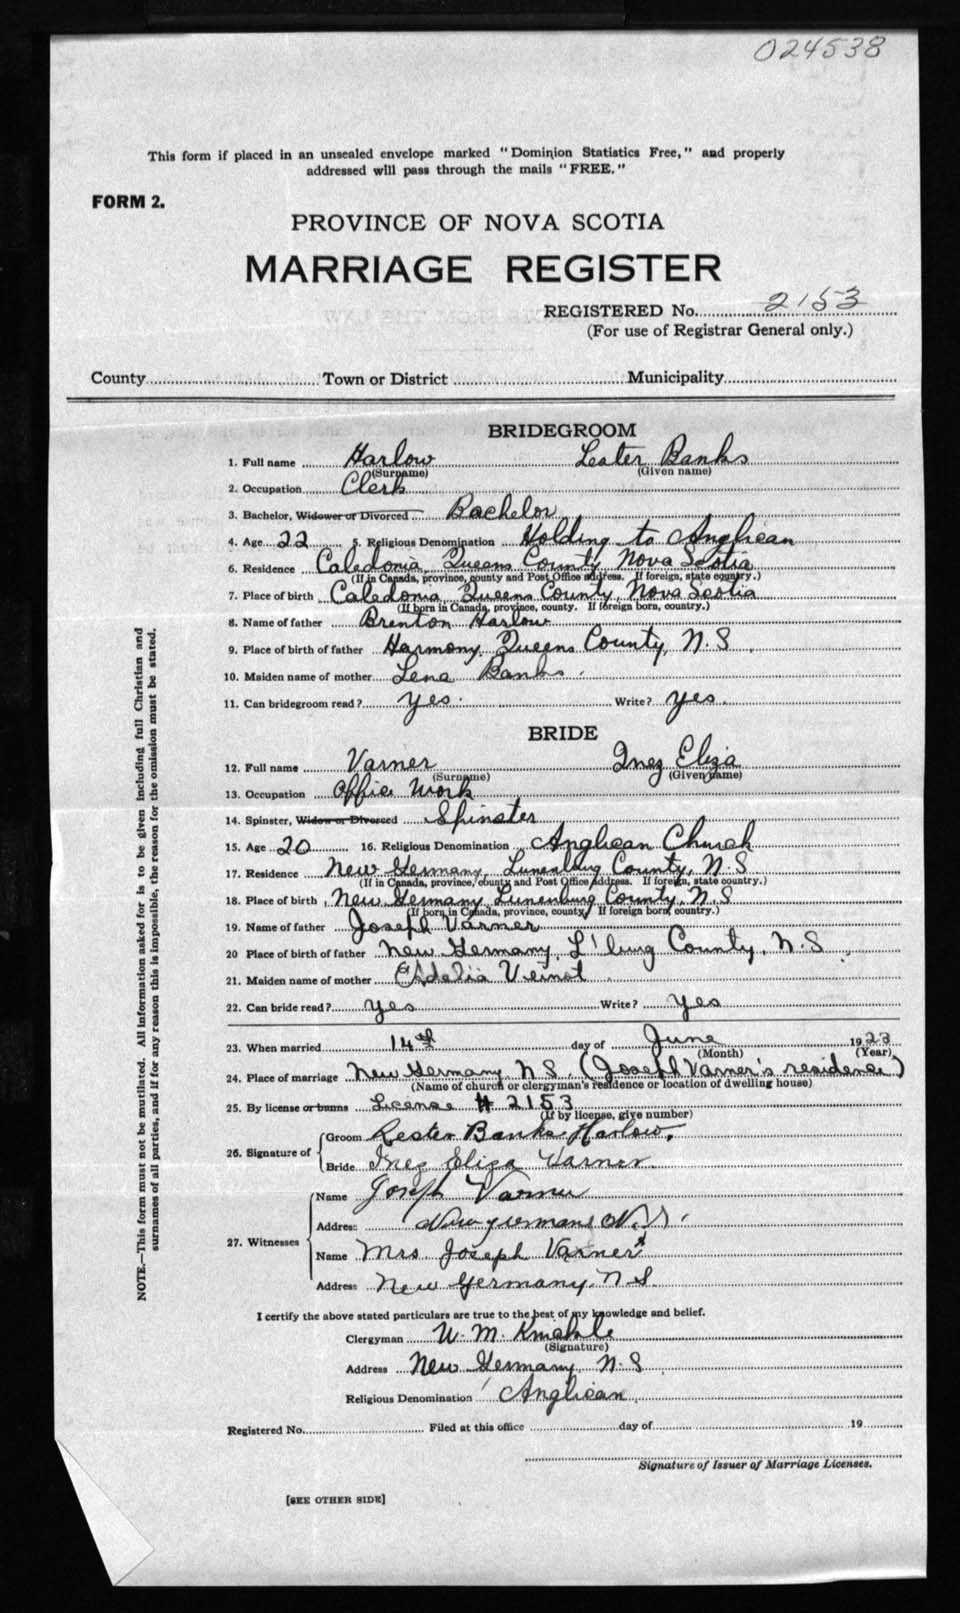 024538
This form if placed in an unsealed envelope marked "Dominion Statistics Free," and properly
addressed will pass through the mails "FREE."
FORM 2.
PROVINCE OF NOVA SCOTIA
MARRIAGE REGISTER
REGISTERED No. 2153
(For use of Registrar General only.)
County Town or District Municipality
BRIDEGROOM
1. Full name Harlow Lester Banks
(Surname) (Given name)
2. Occupation Clerk
3. Bachelor, Widower or Divorced Bachelor
4. Age 22 5. Religious Denomination Holding to Anglican
6. Residence Caledonia, Queens County, Nova Scotia
(If in Canada, province, county and Post Office address. If foreign, state country.)
7. Place of birth Caledonia, Queens County, Nova Scotia
(If born in Canada, province, county. If foreign born, country.)
8. Name of father Brenton Harlow
9. Place of birth of father Harmony, Queens County, N.S.
10. Maiden name of mother Lena Banks.
11. Can bridegroom read? Yes. Write? Yes.
BRIDE
12. Full name Varner Inez Eliza
(Surname) (Given name)
13. Occupation Office Work
14. Spinster, Widow or Divorced Spinster
15. Age 20 16. Religious Denomination Anglican Church
17. Residence New Germany, Lunenburg County, N.S
(If in Canada, province, county and Post Office address. If foreign, state country.)
18. Place of birth New Germany Lunenburg County, N.S
(If born in Canada, province, county. If foreign born, country.)
19. Name of father Joseph Varner
20 Place of birth of father New Germany, L'burg County, N.S
21. Maiden name of mother Adelia Veinot
22. Can bride read? Yes Write? Yes
23. When married 14th day of June 1923
(Month) (Year)
24. Place of marriage New Germany, N.S. (Joseph Varner's residence)
(Name of church or clergyman's residence or location of dwelling house)
25. By license or banns License # 2153
(If by license, give number)
26. Signature of Groom Lester Banks Harlow.
Bride Inez Eliza Varner.
27. Witnesses Name Joseph Varner
Address New Germany N.S.
Name Mrs Joseph Varner
Address New Germany, N S
I certify the above stated particulars are true to the best of my knowledge and belief.
Clergyman W. M.
(Signature)
Address New Germany, N.S.
Religious Denomination Anglican.
Registered No. Filed at this office day of 19
Signature of Issuer of Marriage Licenses.
[SEE OTHER SIDE]
NOTE.—This form must not be mutilated. All information asked for is to be given including full Christian and
surnames of all parties, and if for any reason this is impossible, the reason for the omission must be stated.